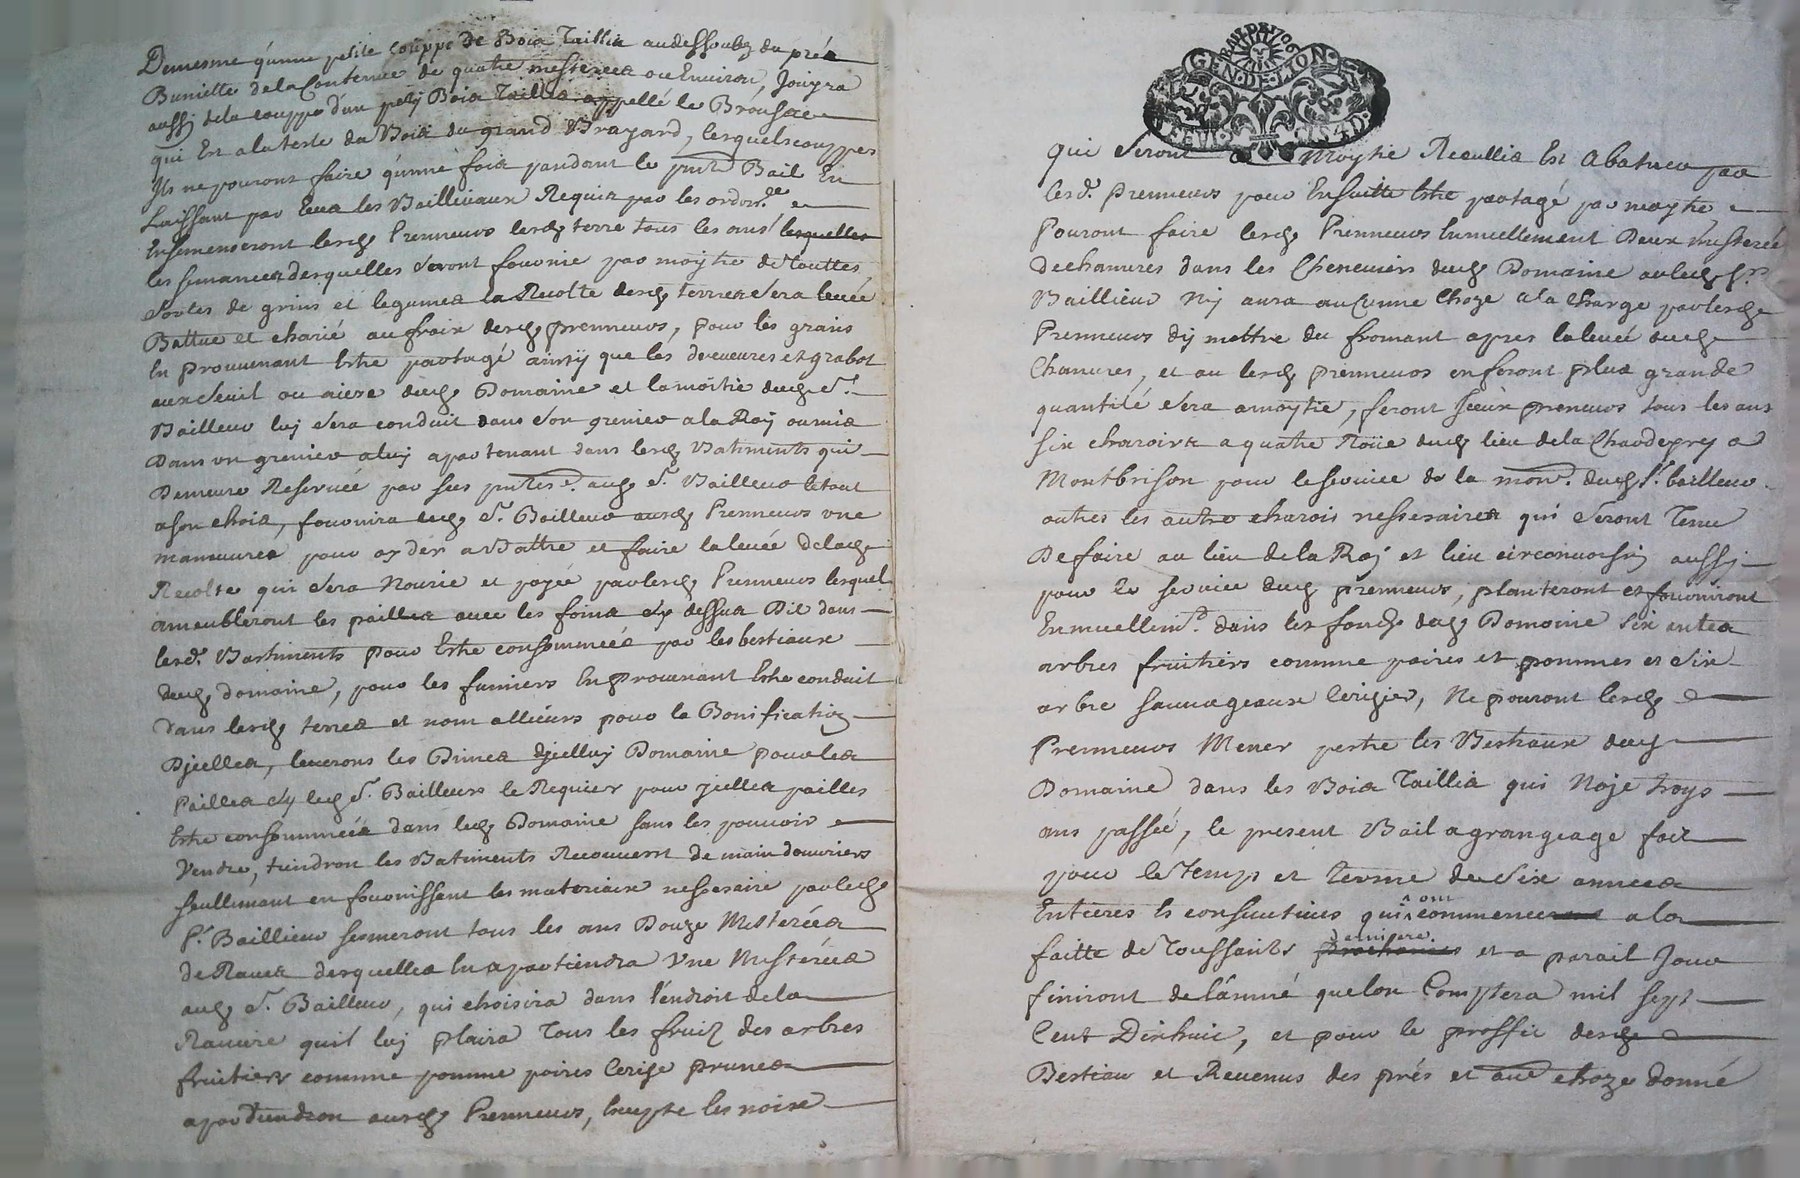 Demesme qu'une petite couppe de Bois Taillis audessoubz du prés
Buniette de la Contenue de quatre mesterées ou Environ, Jouyra
aussy dela couppe d'un petit Bois Taillis appellé le Brousse
qui Est a la teste du Bois du grand Brayard, lesquels couppes
Ils ne pouront faire qu'une fois pandant le pnt Bail En
Laissant par Eux les Baillivaux Requis par les ordon.ce
Ensemenseront lesd. Prenneurs lesd. terre tous les ans lesquelles
les semances desquelles seront fournie par moytie de touttes
Sortes de grins et legumes la Recolte desd. terres sera levée
Battue et charié au frais desd. prenneurs, pour les grains
En prouvenant Estre partagé ainsy que les
aux Seuil ou aiere dud. Domaine et la moitié dud. Sr.
Bailleur luy sera conduit dans son grenier a la Ray ou mis
Dans un grenier a luy apartenant dans lesd. Batiments qui
Demeure Reservée par ses pntes. aud. Sr. Bailleur le tout
a son choix, fournira led. Sr. Bailleur ausd. Prenneurs une
manuures pour ayder a Battre et faire la levée de lad.
Recolte qui sera Nourie et payée par lesd. Prenneurs lesquel
ameubleront les pailles avec les foins cy dessus Dit dans
lesd. Bastiments pour Estre consommeés par les bestiaux
dud. domaine, pour les fumiers En provenant Estre conduit
dans lesd. terres et nom allieurs pour la Bonification
Djcelles, leverons les Dimes djcelluy Domaine pour les
Pailles sy led. Sr. Bailleurs le Requier pour jcelles pailles
Estre consommeés dans led. Domaine sans les pouvoir
Vendre, tiendron les Batiments Recouvert de main douvriers
seullemant en fournissent les materiaux nessesaire par led.
Sr. Baillieur semeront tous les ans Douze Mesterées
de Raves desquelles En apartiendra Une Mesterées
aud. Sr. Bailleur, qui choisira dans l'endroit de la
Raviere quil luy plaira Tous les fruiz des arbres
fruitiers comme pomme poires Cerise prunes
apartiendron ausd. Prenneurs, Excepte les noix
GEN. DE LION
qui seront Moytie Recullis Et Abatues par
lesd. prenneurs pour Ensuitte Estre partagé par moytie
Pouront faire lesd. Prenneurs Ennuellement Deux mesterée
de chanvres dans les Cheneviers dud. Domaine ou led. Sr.
Baillieur Ny aura aucunne Choze a la Charge par lesd.
Prenneurs dy mettre du fromant apres la levée dud.
Chanvres, et ou lesd. prenneurs en feront plus grande
quantité sera a moytie, feront Jceux preneurs tous les ans
six charois a quatre Roüe dud. lieu de la Chaudeprey a
Montbrison pour le service de la mon. dud. Sr. bailleur
outres les autre charois nessesaires qui seront Tenu
De faire au lieu de la Ray et lieu circonvoisin aussy
pour le service dud. prenneurs, planteront et fourniront
Ennuellemt. dans les fonds dud. Domaine six entes
arbres fruitiers comme poires et pommes et six
arbre sauvageaux Cerizier, Ne pouront lesd.
Prenneurs Mener pestre les Bestiaux dud.
Domaine dans les Bois Taillis qui Naje troys
ans passée, le present Bail a grangeage fait
pour le Temps et Terme de six annees
Entieres Et consecutives qui ont commencerant a la
faitte de Toussaints prochaines derniere et a parail Jour
finiront de l'anné que lon Comptera mil sept
Cent Dixhuic, et pour le proffit desd.
Bestiau et Revenus des prés et aue choze donné